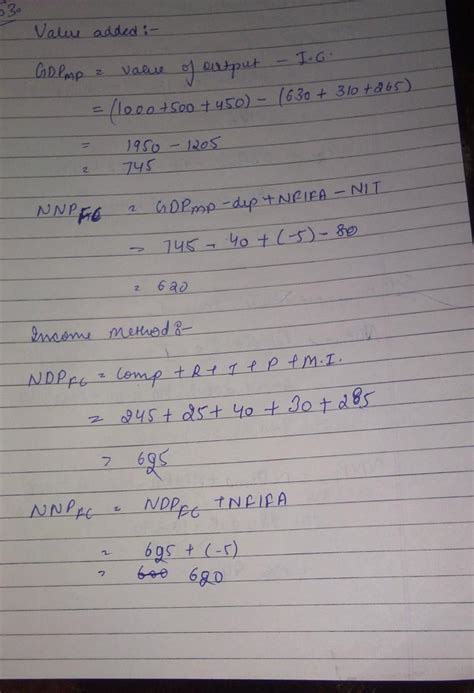 30
Value added:-
GDPmp = value of output - I.C.
= (1000+500+450) - (630 + 310 + 265)
= 1950 - 1205
= 745
NNPFC = GDPmp - dep + NFIFA - NIT
= 745 - 40 + (-5) - 80
= 620
Income method:-
NDPFC = Comp + R + I + P + M.I.
= 245 + 25 + 40 + 30 + 285
= 625
NNPFC = NDPFC + NFIFA
= 625 + (-5)
= 600 620